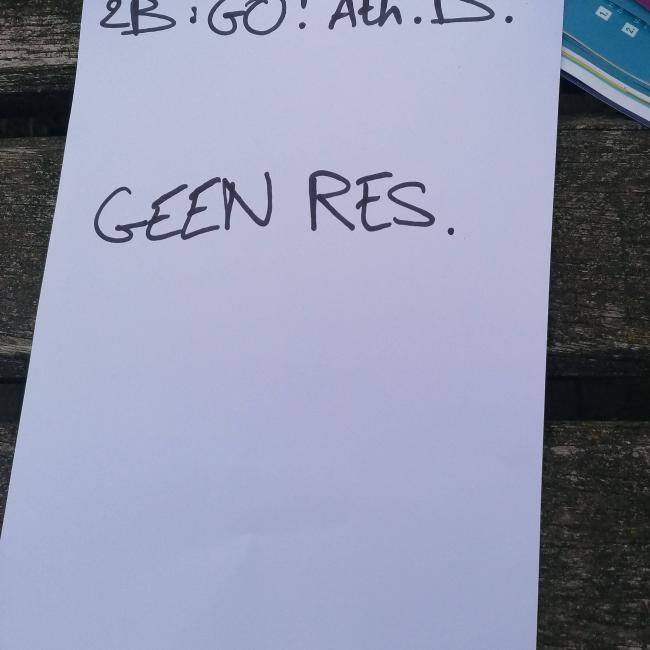 2B: GO! Ath. D.
GEEN RES.
1
2